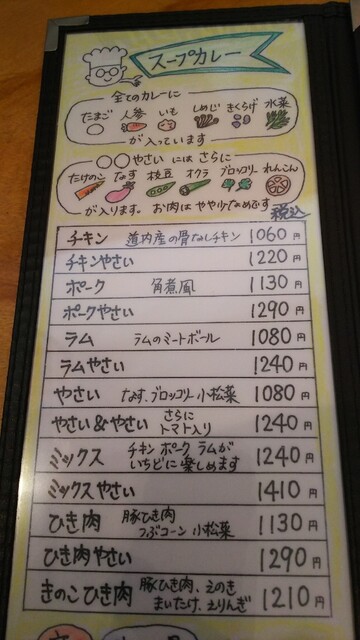 スープカレー
全てのカレーに
たまご 人参 いも しめじ きくらげ 水菜
が入っています
○○やさい には さらに
たけのこ なす 枝豆 オクラ ブロッコリー れんこん
が入ります。 お肉は やや少なめです
税込
チキン 道内産の骨なしチキン 1060円
チキンやさい 1220円
ポーク 角煮風 1130円
ポークやさい 1290円
ラム ラムのミートボール 1080円
ラムやさい 1240円
やさい なす、ブロッコリー 小松菜 1080円
やさい&やさい さらに トマト入り 1240円
ミックス チキン ポーク ラムが いちどに楽しめます 1240円
ミックスやさい 1410円
ひき肉 豚ひき肉 つぶコーン 小松菜 1130円
ひき肉やさい 1290円
きのこひき肉 豚ひき肉、えのき まいたけ、えりんぎ 1210円